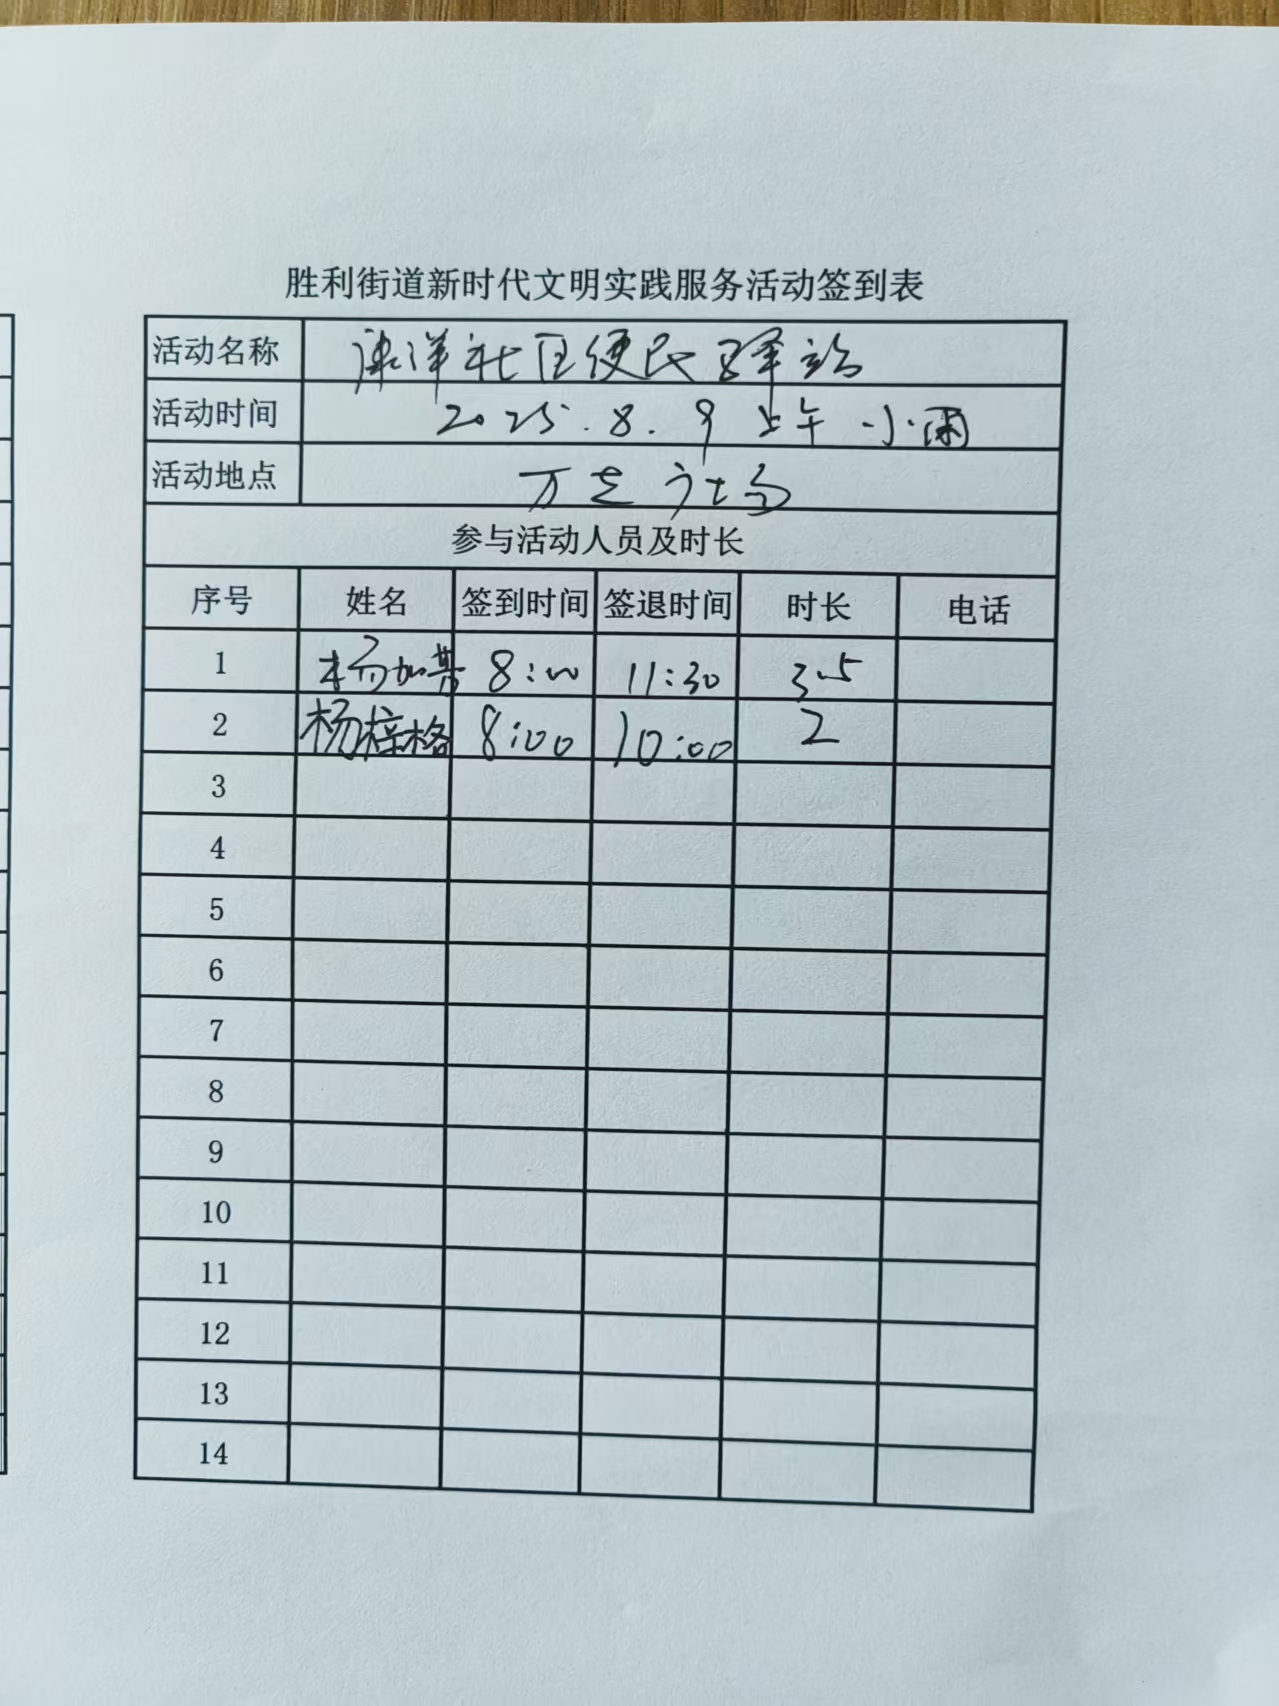 胜利街道新时代文明实践服务活动签到表
活动名称 津洋社区便民驿站
活动时间 2025.8.9 上午 小雨
活动地点 万达广场
参与活动人员及时长
序号 姓名 签到时间 签退时间 时长 电话
1 杨加 8:00 11:30 3.5
2 杨梓格 8:00 10:00 2
3
4
5
6
7
8
9
10
11
12
13
14